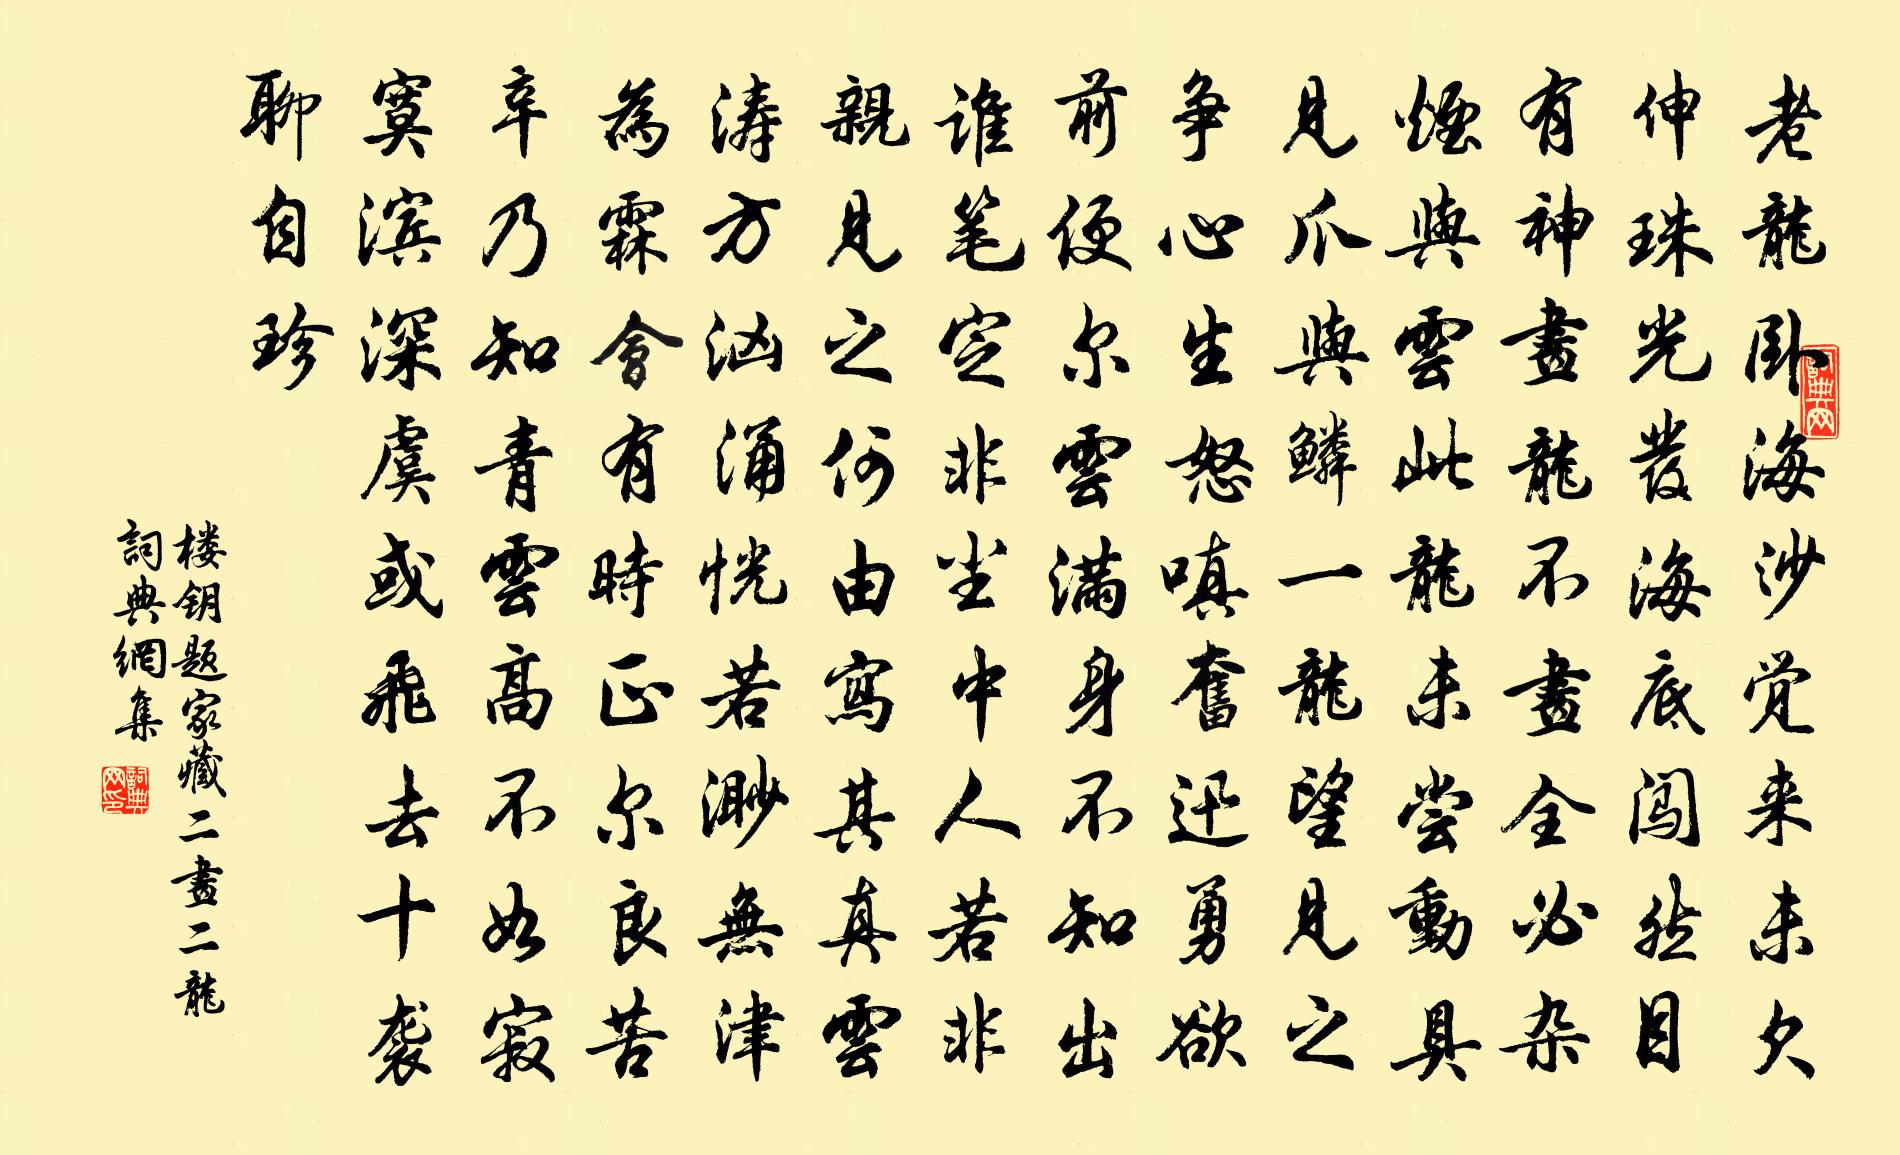 老龍卧海沙觉来未欠
伸珠光發海底闯然目
有神畫龍不畫全必杂
煙與雲此龍未尝動具
見爪與鳞一龍望見之
争心生怒嗔奮迅勇欲
前便尔雲满身不知出
谁笔定非尘中人若非
親見之何由寫其真雲
涛方汹涌恍若渺無津
為霖會有時正尔良苦
辛乃知青雲高不如寂
寞滨深虞或飛去十袭
聊自珍
楼钥题家藏二畫二龍
詞典網集
詞典网
詞典网印